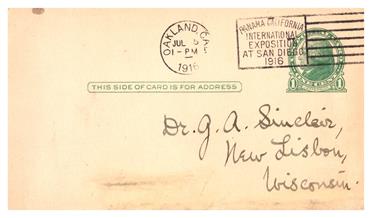 OAKLAND, CAL.
JUL 5
1-PM
1916
PANAMA CALIFORNIA
INTERNATIONAL
EXPOSITION
AT SAN DIEGO
1916
1 1
THIS SIDE OF CARD IS FOR ADDRESS
Dr. G. A. Sinclair,
New Lisbon,
Wisconsin.